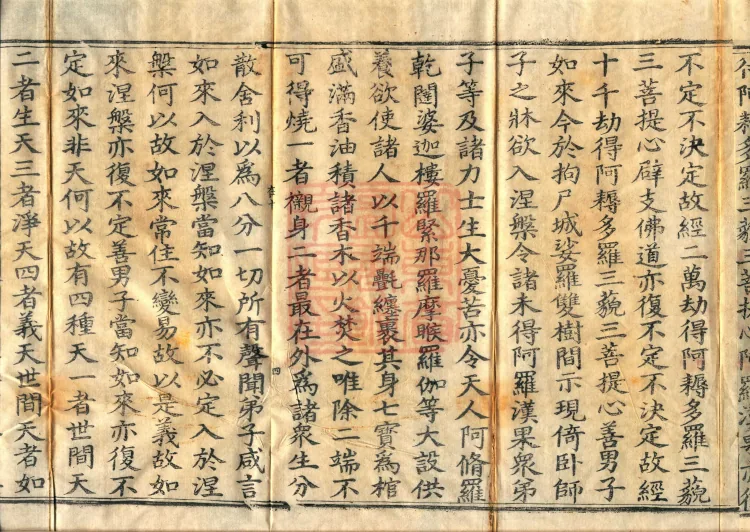 得阿耨多羅三藐三菩提心阿羅漢果亦復
不定不決定故經二萬劫得阿耨多羅三藐
三菩提心辟支佛道亦復不定不決定故經
十千劫得阿耨多羅三藐三菩提心善男子
如來今於拘尸城娑羅雙樹間示現倚卧師
子之牀欲入涅槃令諸未得阿羅漢果衆弟
子等及諸力士生大憂苦亦令天人阿脩羅
乾闥婆迦樓羅緊那羅摩睺羅伽等大設供
養欲使諸人以千端㲲纏裹其身七寶爲棺
盛滿香油積諸香木以火焚之唯除二端不
可得燒一者襯身二者最在外爲諸衆生分
散舍利以爲八分一切所有聲聞弟子咸言
如來入於涅槃當知如來亦不必定入於涅
槃何以故如來常住不變易故以是義故如
來涅槃亦復不定善男子當知如來亦復不
定如來非天何以故有四種天一者世間天
二者生天三者淨天四者義天世間天者如